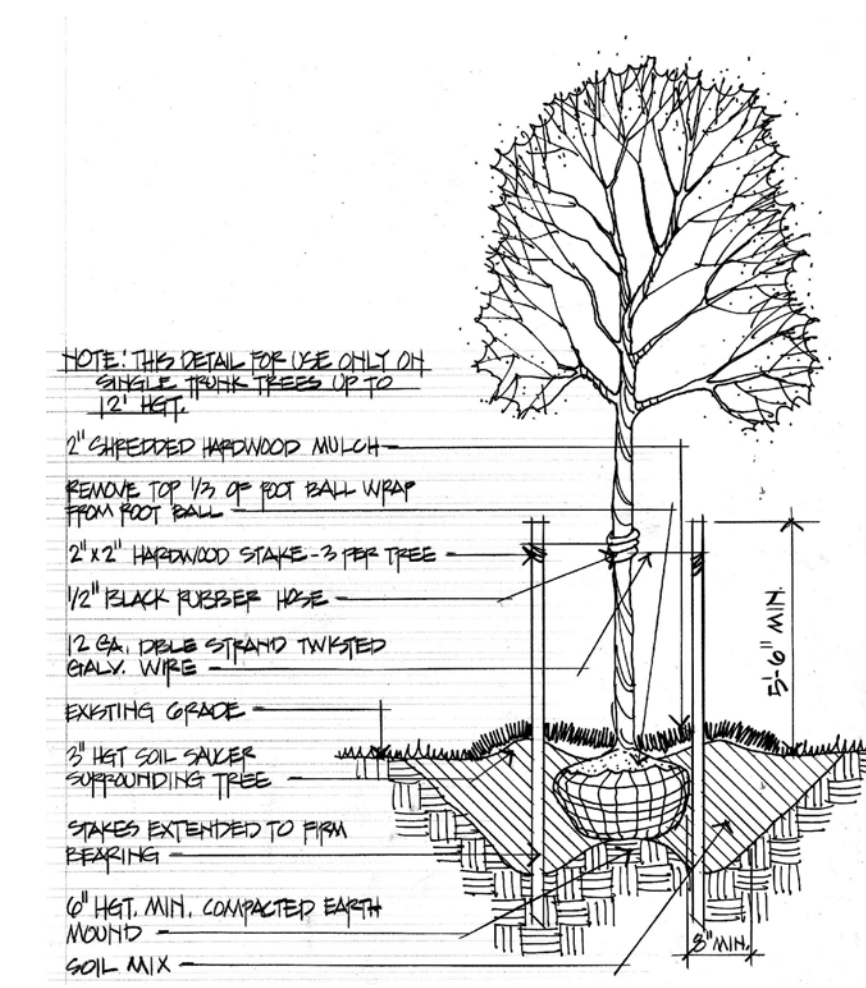 NOTE: THIS DETAIL FOR USE ONLY ON
SINGLE TRUNK TREES UP TO
12' HGT.
2" SHREDDED HARDWOOD MULCH
REMOVE TOP 1/3 OF ROOT BALL WRAP
FROM ROOT BALL
2" x 2" HARDWOOD STAKE - 3 PER TREE
1/2" BLACK RUBBER HOSE
12 GA. DBLE STRAND TWISTED
GALV. WIRE
EXISTING GRADE
3" HGT SOIL SAUCER
SURROUNDING TREE
STAKES EXTENDED TO FIRM
BEARING
6" HGT. MIN. COMPACTED EARTH
MOUND
SOIL MIX
5'-6" MIN.
8" MIN.